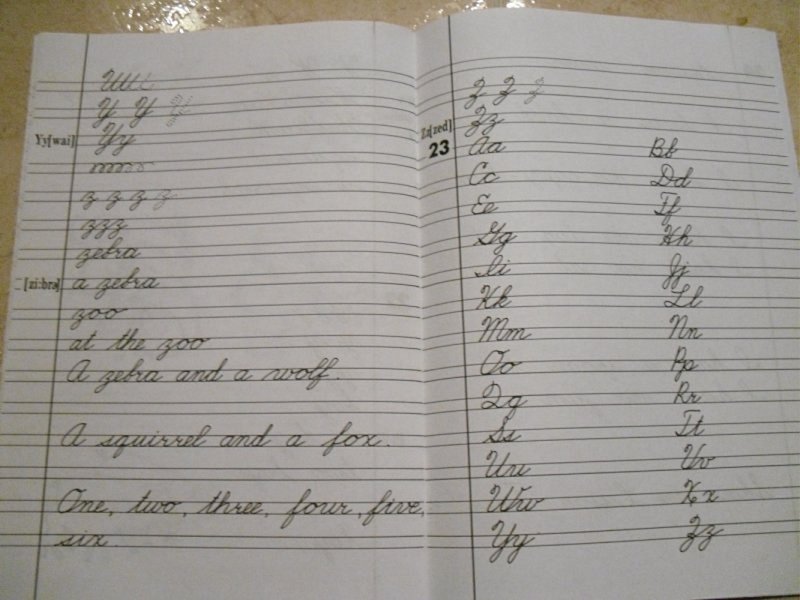 Y Y Y
Yy[wai] Yy
z z z z
zzz
zebra
[zi:brə] a zebra
zoo
at the zoo
A zebra and a wolf.
A squirrel and a fox.
One, two, three, four, five,
six.
Z Z Z
Zz[zed] Zz
23 Aa Bb
Cc Dd
Ee Ff
Gg Hh
Ii Jj
Kk Ll
Mm Nn
Oo Pp
Qq Rr
Ss Tt
Uu Vv
Ww Xx
Yy Zz